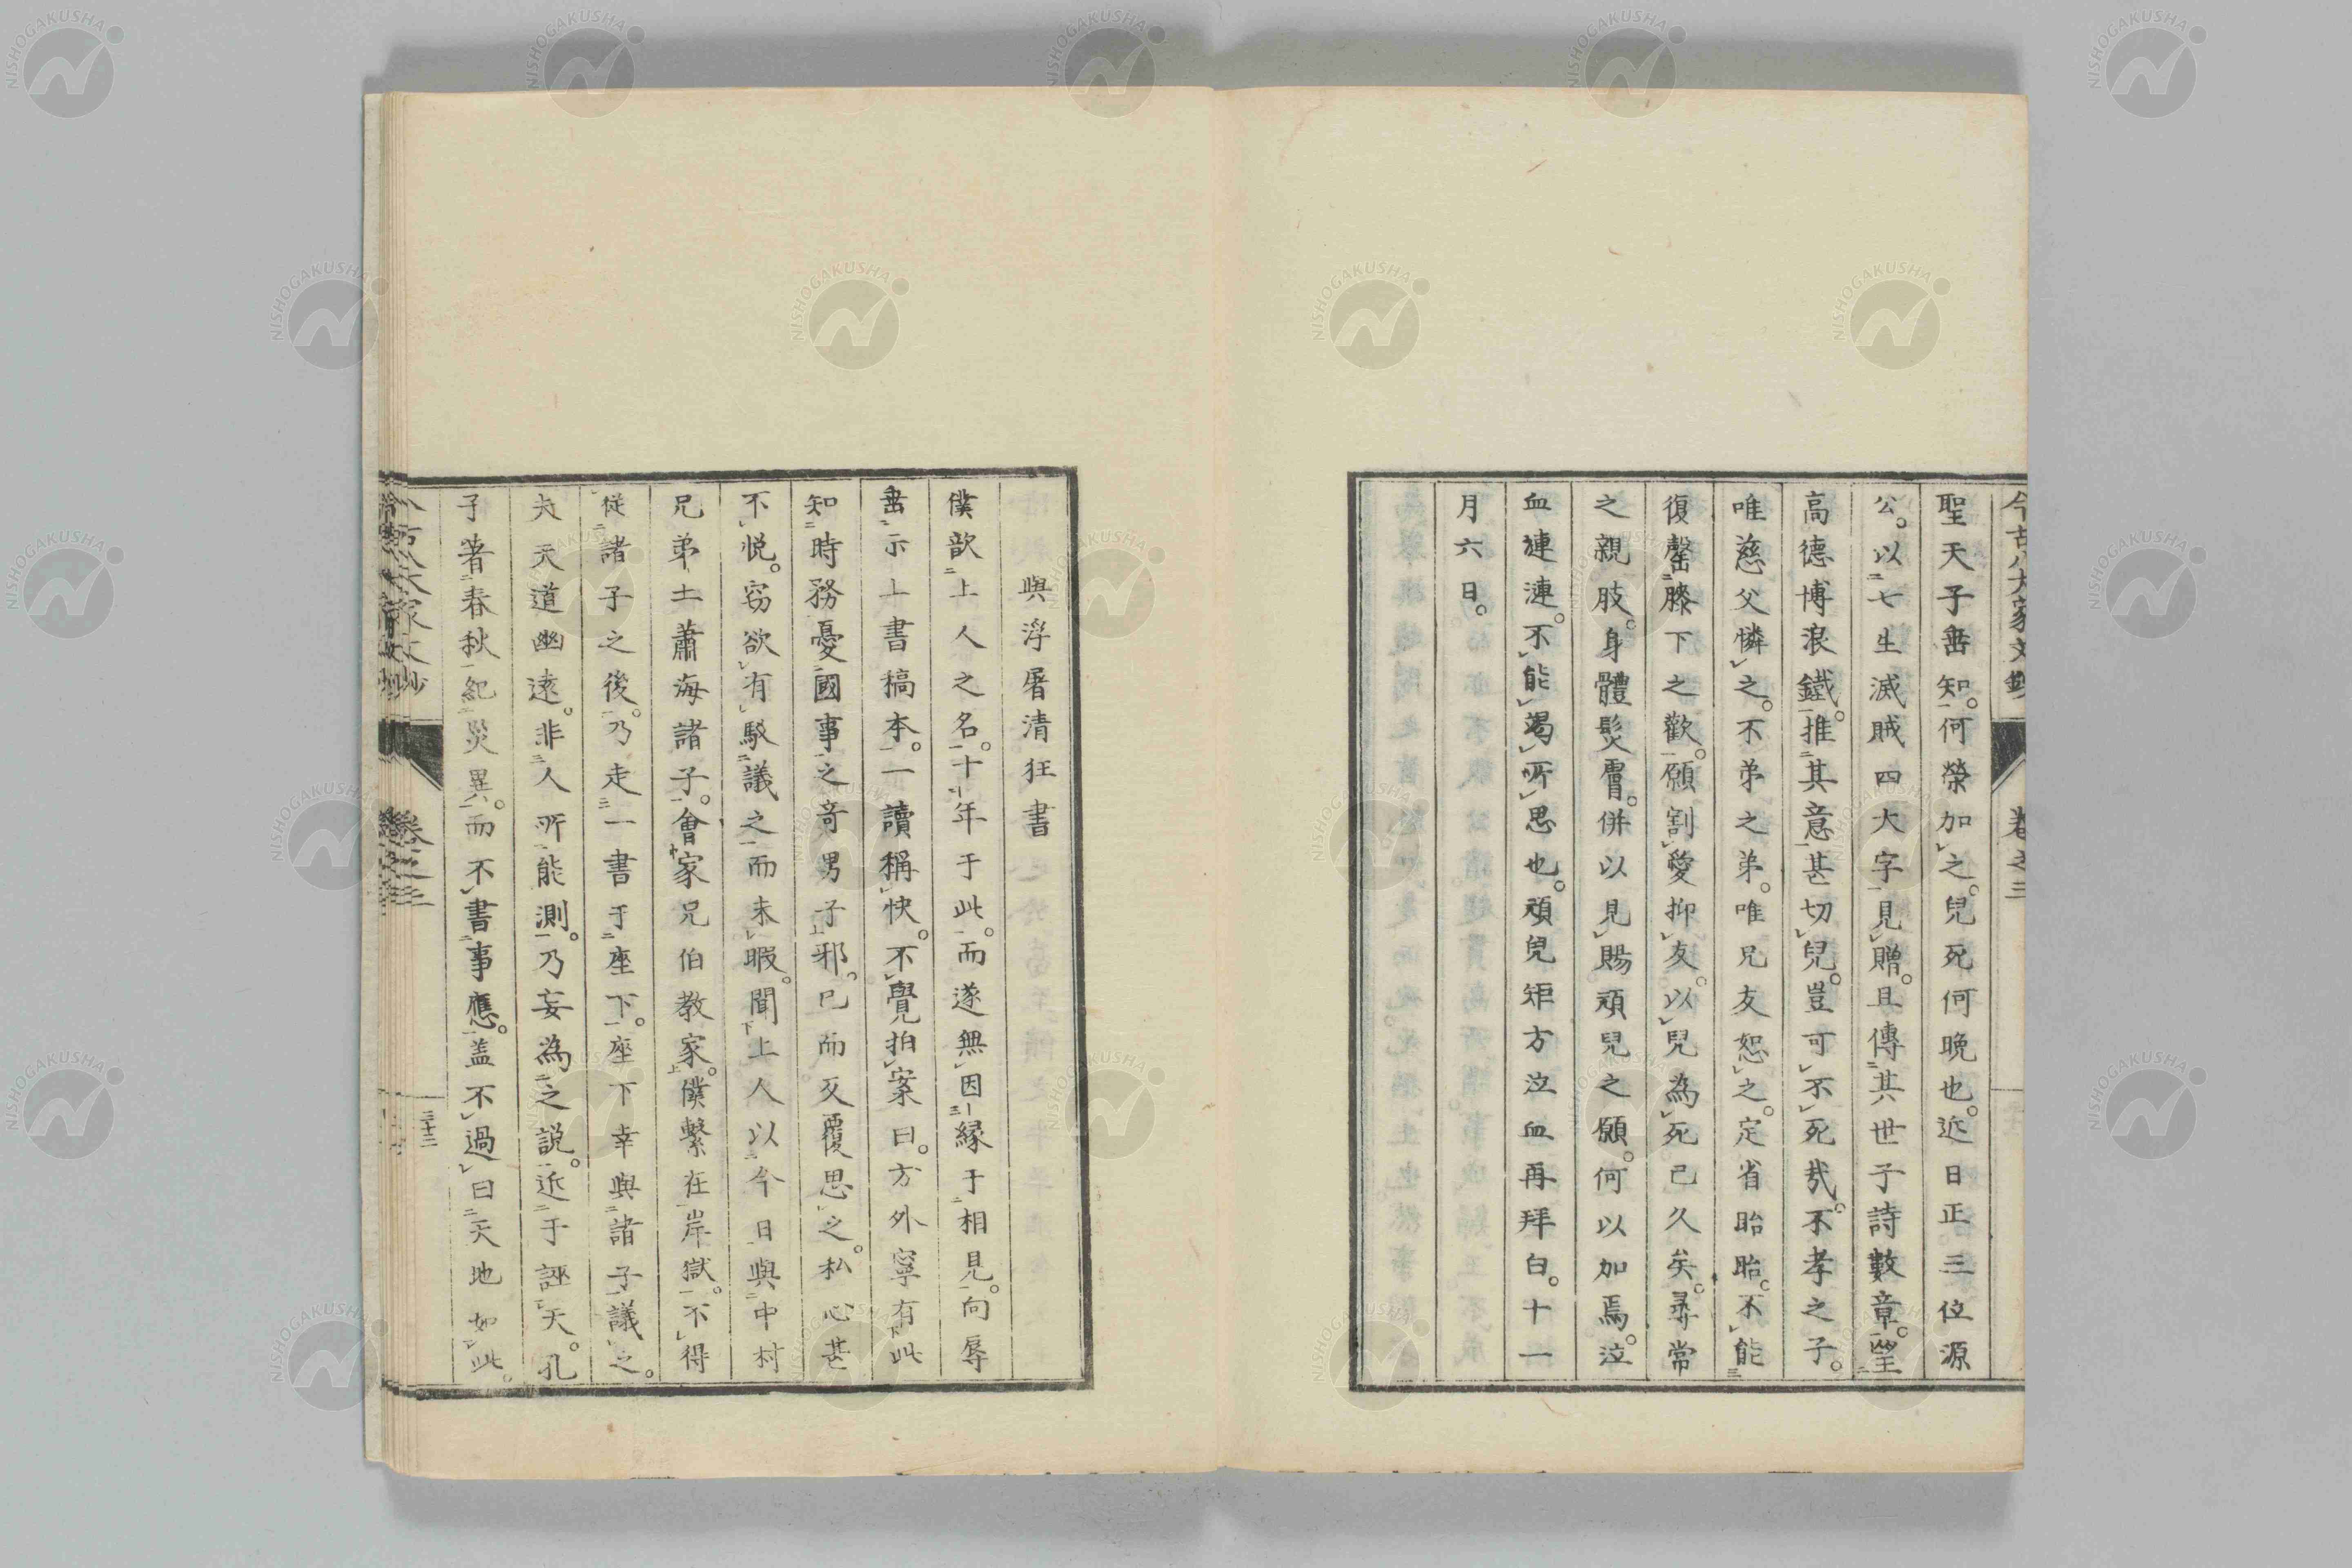 今古八大家文鈔
卷之三
聖天子垂知。何榮加之。兒死何晚也。近日正三位源
公。以七生滅賊四大字見贈。且傳其世子詩數章。望
高德博浪鐵。推其意甚切兒。豈可不死哉。不孝之子。
唯慈父憐之。不弟之弟。唯兄友恕之。定省眙眙。不能
復罄膝下之歡。願割愛抑友。以兒為死已久矣。尋常
之親肢。身體髮膚。併以見賜頑兒之願。何以加焉。泣
血漣漣。不能竭所思也。頑兒矩方泣血再拜白。十一
月六日。
與浮屠清狂書
僕歆上人之名。十年于此。而遂無因緣于相見。向辱
垂示上書稿本。一讀稱快。不覺拍案曰。方外寧有此
知時務憂國事之奇男子邪。已而又覆思之。私心甚
不悅。窃欲有駁議之而未暇。聞上人以今日與中村
兄弟土蕭海諸子。會家兄伯教家。僕繫在岸獄。不得
從諸子之後。乃走一書于座下。座下幸與諸子議之。
夫天道幽遠。非人所能測。乃妄為之説。近于誣天。孔
子著春秋紀災異。而不書事應。蓋不過曰天地如此。
卷之三
三十三
NISHOGAKUSHA